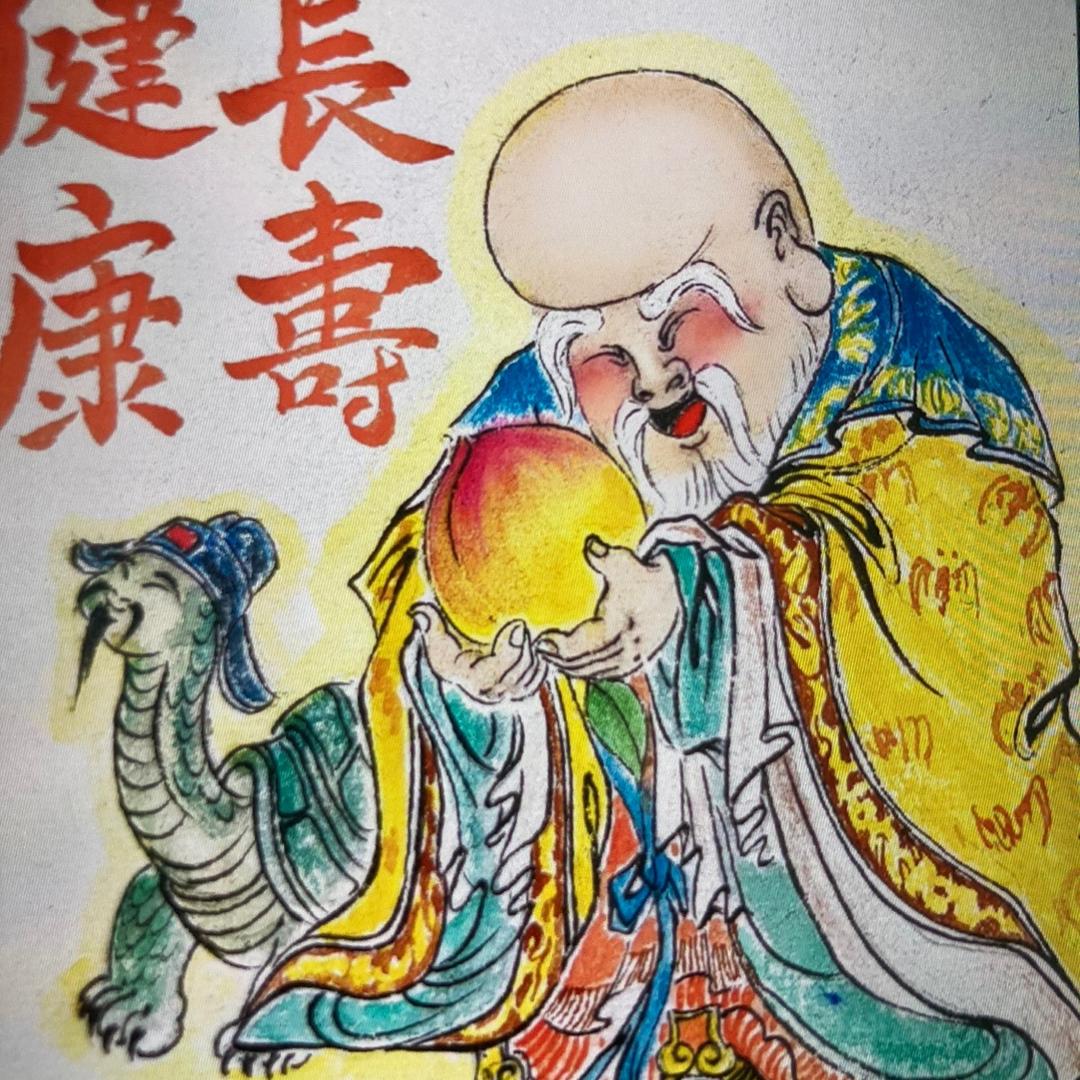 長壽
健康